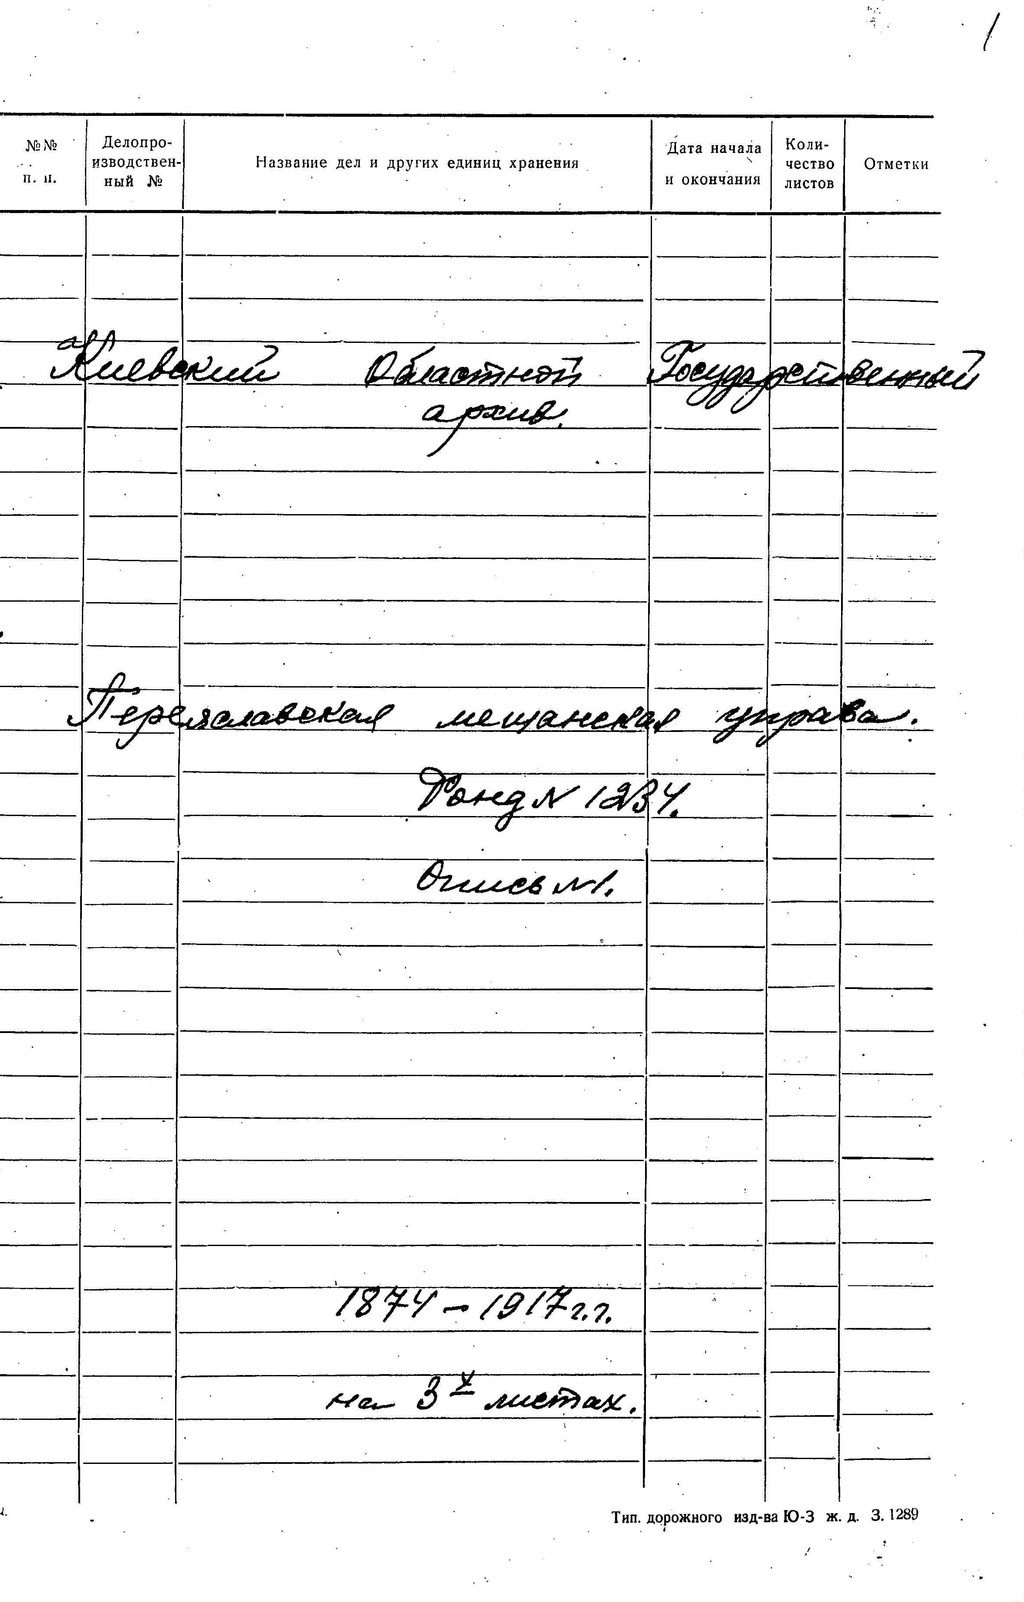 1
№№ п. п.
Делопро-
изводствен-
ный №
Название дел и других единиц хранения
Дата начала
и окончания
Коли-
чество
листов
Отметки
Киевский Областной Государственный
архив.
Переяславская мещанская управа.
Фонд N 1234.
Опись N 1.
1874 – 1917 г.г.
на 3х листах.
Тип. дорожного изд-ва Ю-З ж. д. З. 1289